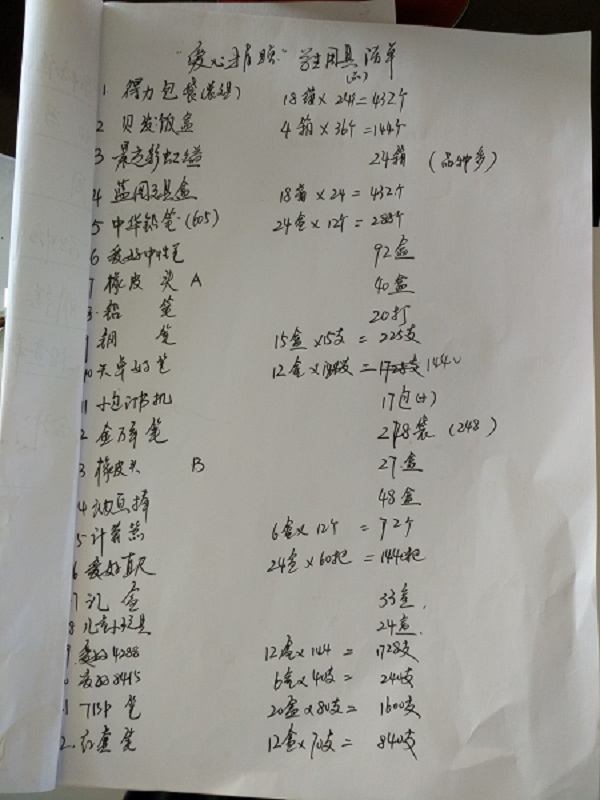 "爱心捐赠" 学生用具清单
1 得力包袋 18箱×24个=432个
2 贝发饭盒 4箱×36个=144个
3 晨光彩虹 24箱 (品种多)
4 蓝图文具盒 18箱×24=432个
5 中华铅笔(605) 24盒×12个=288个
6 爱好中性笔 92盒
7 橡皮头 A 40盒
8. 铅笔 20打
9 钢笔 15盒×15支=225支
10 天卓好笔 12盒× =
11 订书机 17包
2 金万年笔 (248)
3 橡皮头 B 27盒
4 48盒
5 计算器 6盒×12个=72个
6 爱好直尺 24盒×60把=1440把
7 盒 33盒.
8 儿童玩具 24盒.
9 爱好4288 12盒×144=1728支
爱好8415 6盒×40支=240支
1 笔 20盒×80支=1600支
2. 笔 12盒×70支=840支